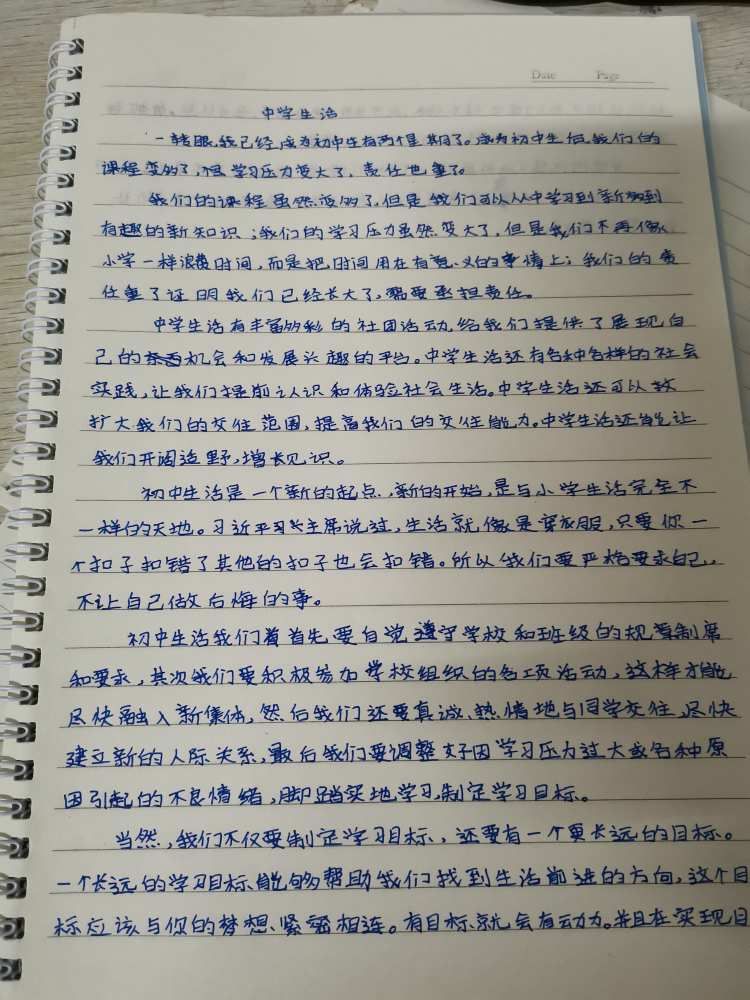 Date Page
中学生活
一转眼,我已经成为初中生有两个星期了。成为初中生后,我们的
课程变多了,但学习压力变大了,责任也重了。
我们的课程虽然变多了,但是我们可以从中学习到新多到
有趣的新知识;我们的学习压力虽然变大了,但是我们不再像
小学一样浪费时间,而是把时间用在有意义的事情上;我们的责
任重了证明我们已经长大了,需要承担责任。
中学生活有丰富多彩的社团活动,给我们提供了展现自
己的机会和发展兴趣的平台。中学生活还有各种各样的社会
实践,让我们提前认识和体验社会生活。中学生活还可以
扩大我们的交往范围,提高我们的交往能力。中学生活还能让
我们开阔造野,增长见识。
初中生活是一个新的起点,新的开始,是与小学生活完全不
一样的天地。习近平主席说过,生活就像是穿衣服,只要你一
个扣子扣错了其他的扣子也会扣错。所以我们要严格要求自己,
不让自己做后悔的事。
初中生活我们首先要自觉遵守学校和班级的规章制度
和要求,其次我们要积极参加学校组织的各项活动,这样才能
尽快融入新集体,然后我们还要真诚、热情地与同学交往,尽快
建立新的人际关系,最后我们要调整好因学习压力过大或各种原
因引起的不良情绪,脚踏实地学习,制定学习目标。
当然,我们不仅要制定学习目标,还要有一个更长远的目标。
一个长远的学习目标,能够帮助我们找到生活前进的方向,这个目
标应该与你的梦想、紧密相连。有目标,就会有动力。并且在实现目